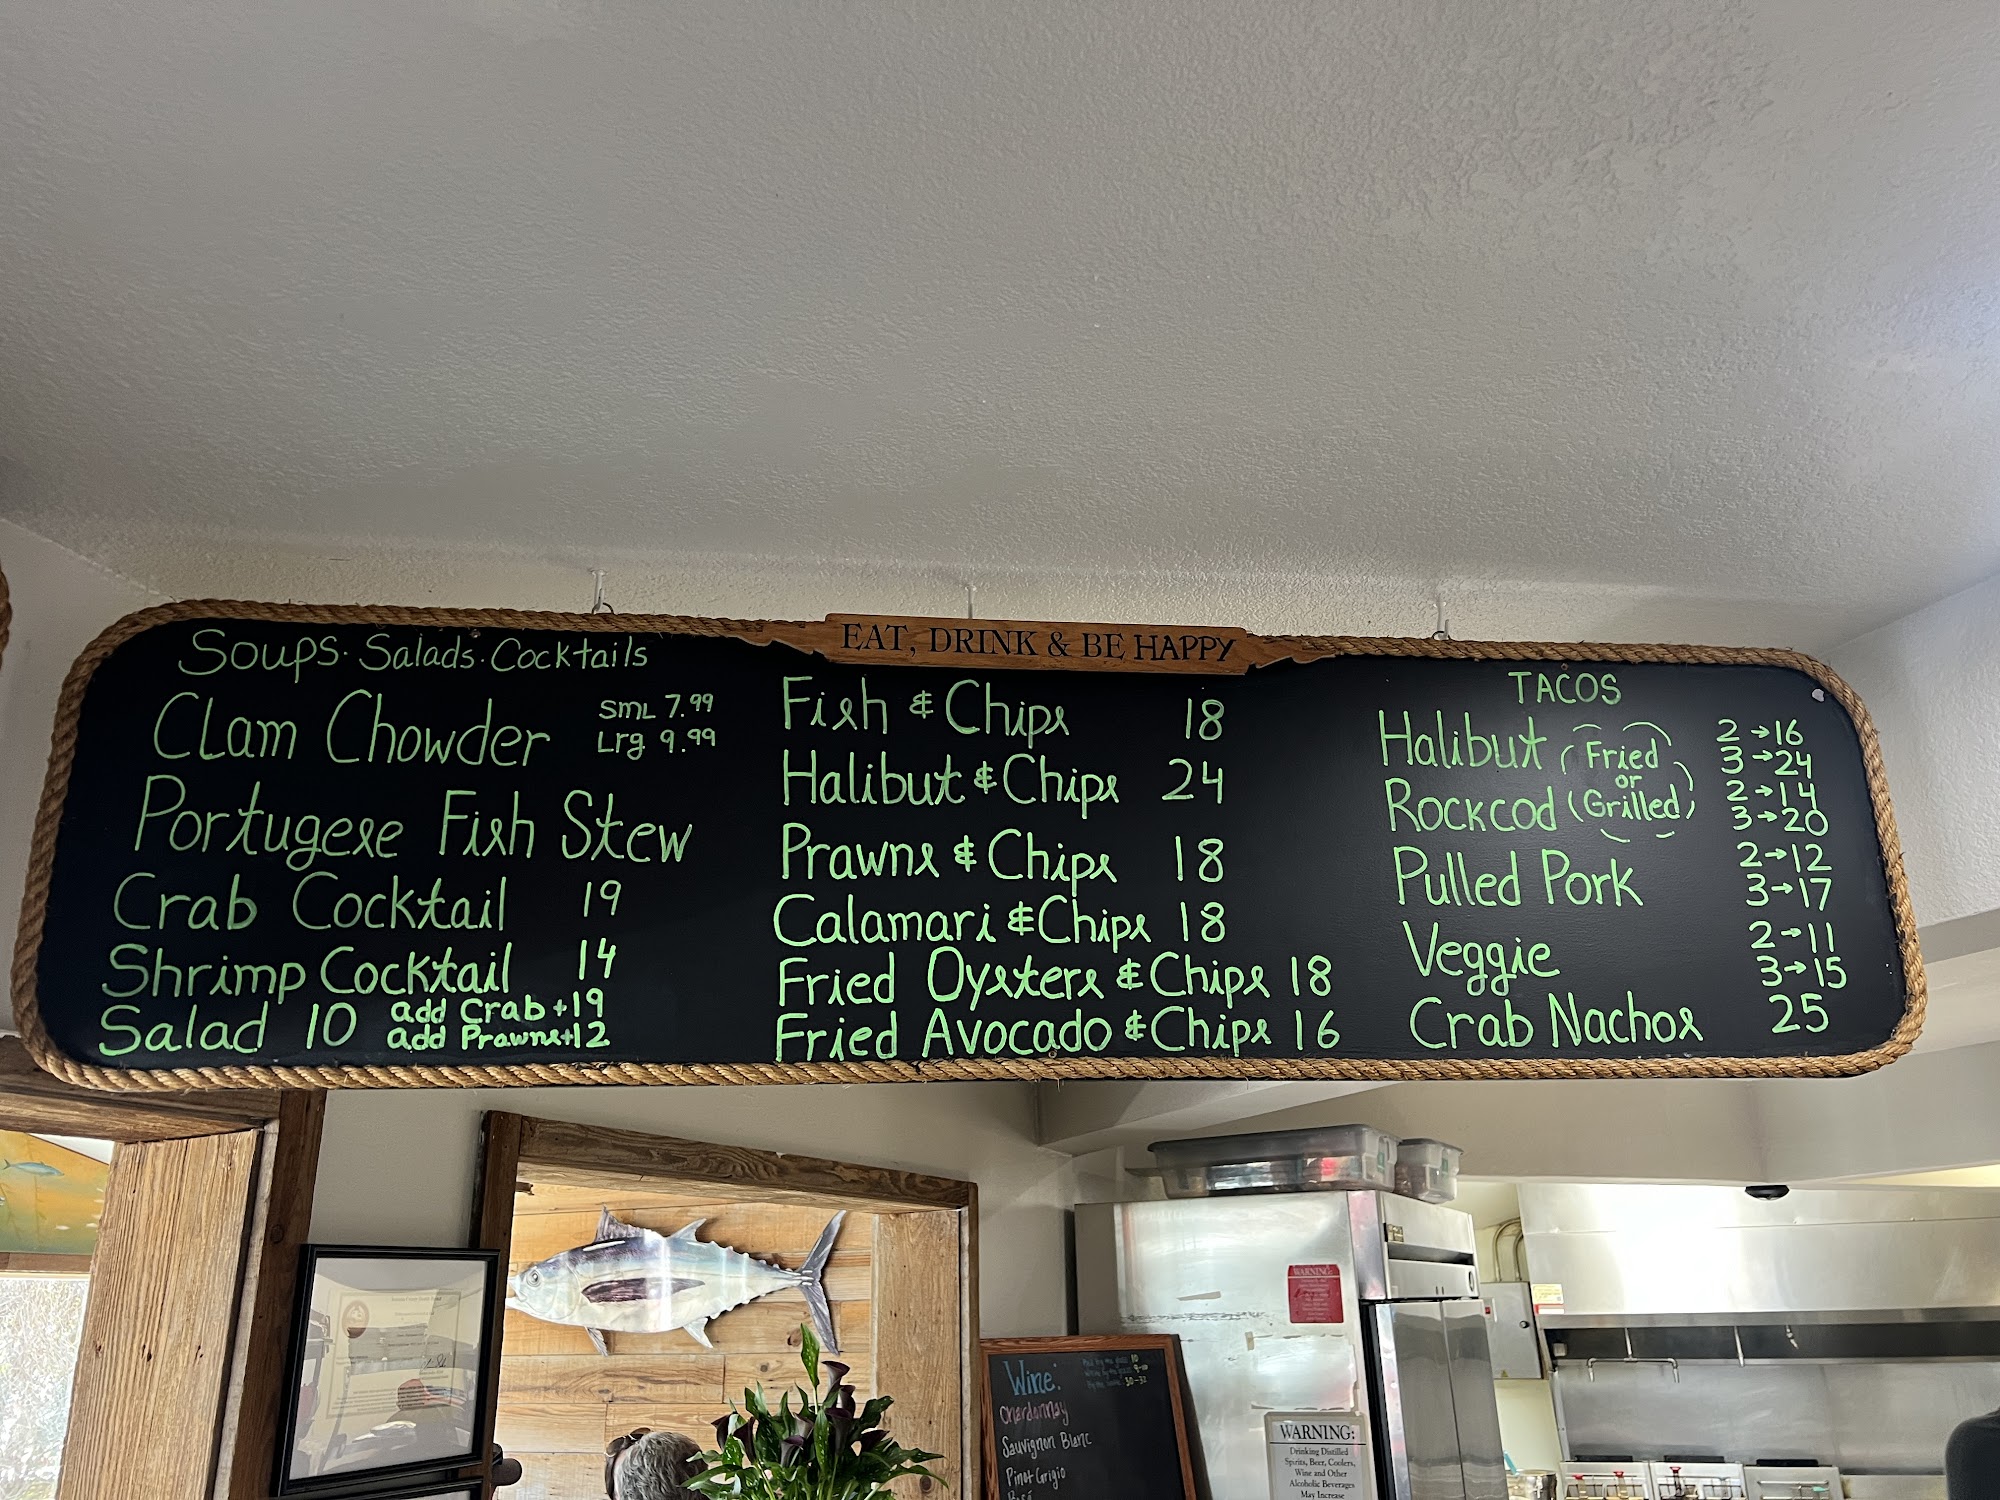 EAT, DRINK & BE HAPPY
Soups · Salads · Cocktails
Clam Chowder Sml 7.99
Lrg 9.99
Portugese Fish Stew
Crab Cocktail 19
Shrimp Cocktail 14
Salad 10 add Crab +19
add Prawns +12
Fish & Chips 18
Halibut & Chips 24
Prawns & Chips 18
Calamari & Chips 18
Fried Oysters & Chips 18
Fried Avocado & Chips 16
TACOS
Halibut (Fried 2→16
or 3→24
Rockcod Grilled) 2→14
3→20
Pulled Pork 2→12
3→17
Veggie 2→11
3→15
Crab Nachos 25
Wine:
Chardonnay
Sauvignon Blanc
Pinot Grigio
WARNING:
WARNING:
Drinking Distilled
Spirits, Beer, Coolers,
Wine and Other
Alcoholic Beverages
May Increase